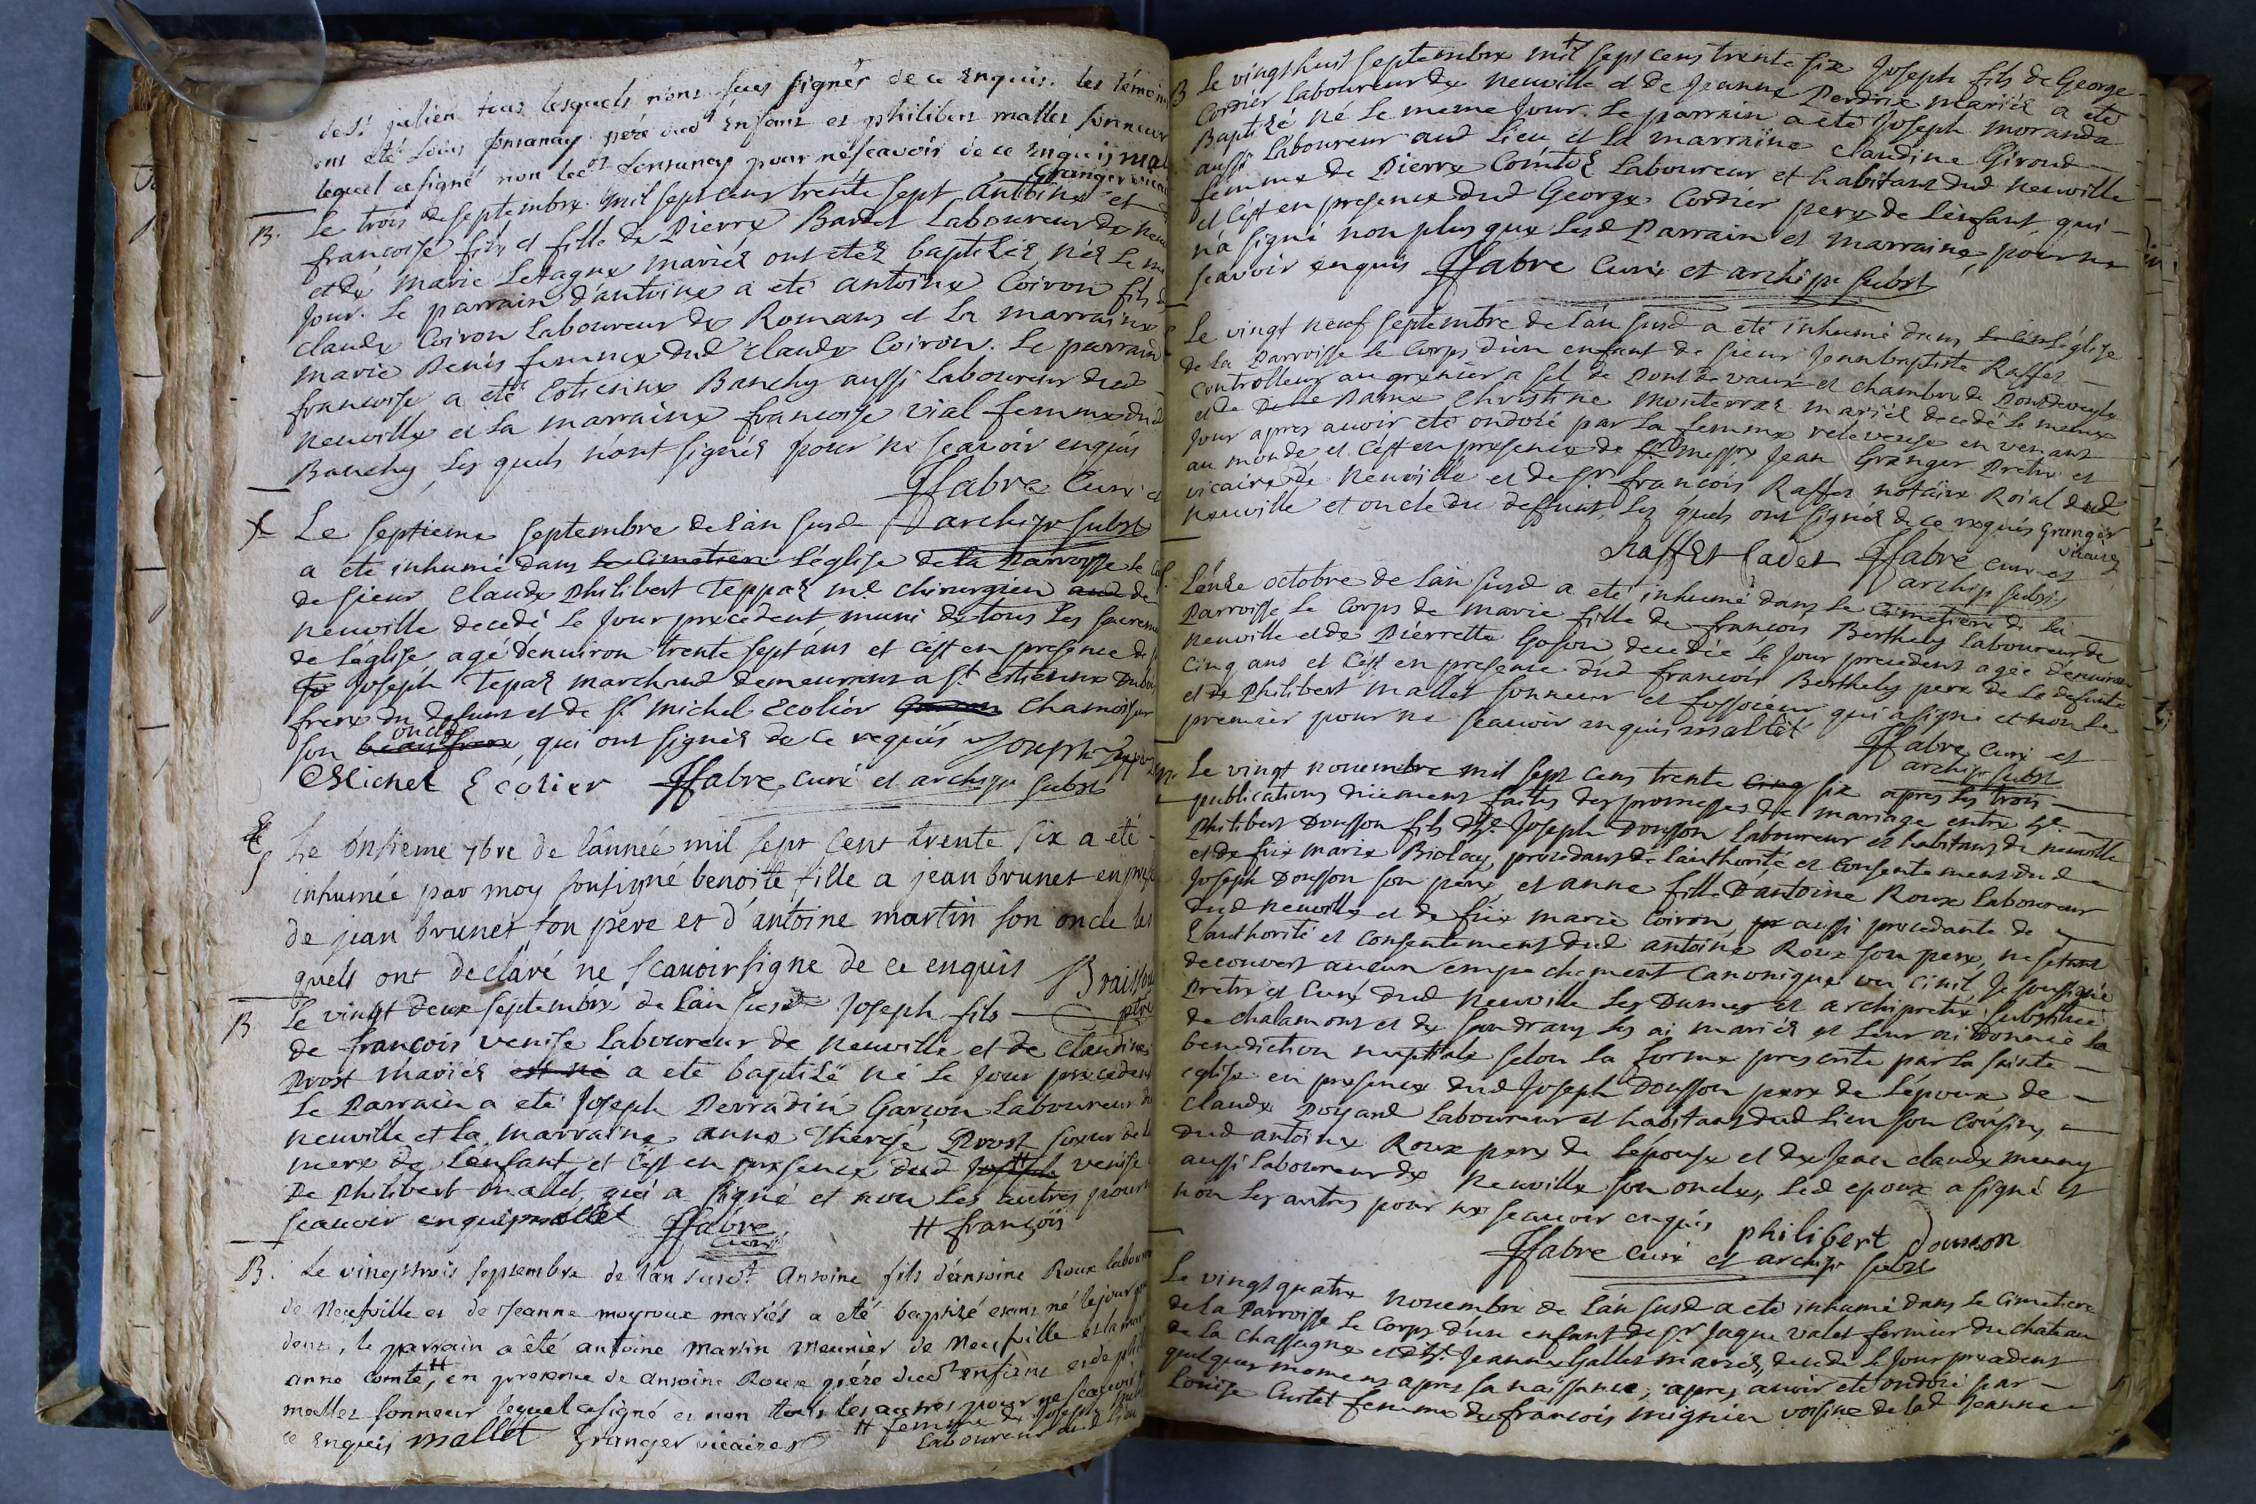 de St julien tous lesquels n'ont sceu signer de ce Enquis. les témoins
ont été Louis fontanay père dud enfant et philibert mallet sonneur
lequel a signé non led fontanay pour ne scavoir de ce Enquis mallet
Granger vicaire
B. Le trois de septembre mil sept cens trente sept Antoine et
françoise fils et fille de Pierre Bardet Laboureur de Neuville
et de Marie Letagne mariés ont etés baptisés nés le même
Jour. Le parrain d'antoine a eté antoine Coiron fils de
claude Coiron Laboureur de Romans et La marraine
marie Denis femme dud claude Coiron. Le parrain de
francoise a eté Estienne Banchy aussi Laboureur dud
Neuville et La marraine francoise vial femme dud
Banchy, Les quels n'ont signés pour ne scavoir enquis
JFabre Curé et
archipr subst
Le septieme septembre de L'an susd
a eté inhumé dans le cimetiere L'église de la Parroisse le Corps
de sieur Claude Philibert Teppas me chirurgien aud de
Neuville decedé Le Jour precedent muni de tous Les sacremens
de L'église agé d'environ trente sept ans et c'est en presence de
Joseph Tepas marchand demeurant a St estienne dubois
frere du defunt et de Sr michel Ecolier chamoiseur
son beaufrere oncle, qui ont signés de ce requis Joseph Teppas
Michel Ecolier JFabre, curé et archipr subst
S Le onsieme 7bre de l'année mil sept cent trente six a eté
inhumée par moy sousigné benoitte fille a jean brunet en presence
de jean brunet son pere et d'antoine martin son oncle les
quels ont declaré ne scavoir signe de ce enquis Braisson
ptre
B Le vingt deux septembre de L'an susd Joseph fils
de françois venise Laboureur de Neuville et de Claudine
Prost mariés est né a eté baptisé né Le Jour precedent
Le Parrain a eté Joseph Perradin Garçon Laboureur de
Neuville et La marraine anne Therese Prost soeur de la
mere de L'enfant et c'est en presence dud Joseph # venise
De Philibert mallet, qui a signé et non Les autres pour ne
scavoir enquis mallet JFabre # françois
Curé
B. Le vingt trois septembre de l'an susd Antoine fils d'antoine Roux laboureur
de Neufville et de Jeanne moyroux mariés a eté baptisé etant né le jour prece
dent, le parrain a été antoine martin meunier de Neufville et la marraine
anne comte #, en presence de Antoine Roux père dud enfant et de philibert
mallet sonneur lequel a signé et non tous les autres pour ne scavoir
ce Enquis mallet Granger vicaire # femme de Joseph
Laboureur dud
B Le vingt huit septembre mil sept cens trente six Joseph fils de George
Cordier Laboureur de Neuville et de Jeanne Perdrix mariés a eté
Baptisé né Le meme Jour. Le parrain a eté Joseph Moranda
aussi Laboureur aud Lieu et La marraine claudine Giroud
femme de Pierre Comtet Laboureur et habitant dud Neuville
et c'est en presence dud George Cordier pere de L'enfant qui
n'a signé non plus que Lesd Parrain et marraine, pour ne
scavoir enquis JFabre Curé et archipr subst
Le vingt neuf septembre de L'an susd a eté inhumé dans L'église
de La Parroisse Le Corps d'un enfant de sieur Jeanbaptiste Raffet
Controlleur au grenier a sel de Pont de vaux et chambre de Pontdeveyle
et de Dame Christine monterrat mariés decedé Le meme
Jour apres avoir eté ondoié par La femme releveuse en venant
au monde et c'est en presence de messre Jean Granger Pretre et
vicaire de Neuville et de Sr francois Raffet notaire Roial dud
Neuville et oncle du deffunt, Les quels ont signés de ce requis Granger
vicaire
Raffet Cadet JFabre curé et
archip subst
L'onze octobre de L'an susd a eté inhumé dans Le Cimetiere de La
Parroisse Le Corps de marie fille de francois Berthely Laboureur de
Neuville et de Pierrette Goson decedée Le Jour precedent agée d'environ
Cinq ans et c'est en presence dud francois Berthely pere de La defunte
et de Philibert mallet sonneur et fossoieur qui a signé et non Le
premier pour ne scavoir enquis mallet JFabre, curé et
archipr subst
m. Le vingt novembre mil sept cens trente cinq six apres Les trois
publications düement faites des promesses de mariage entre he
Philibert Dousson fils d'he Joseph Dousson Laboureur et habitant de Neuville
et de füe marie Biolay, procedant de L'authorité et consentement dud
Joseph Dousson son pere et anne fille D'antoine Roux Laboureur
dud Neuville et de füe marie Coiron, aussi procedante de
L'authorité et consentement dud antoine Roux son pere, ne setant
decouvert aucun empechement Canonique ou civil, Je soussigné
Pretre et Curé dud Neuville Les Dames et archipretre substitué
de chalamont et de sandrans Les ai mariés et Leur ai Donnée La
benediction nuptiale selon La forme prescrite par La sainte
eglise en presence dud Joseph Dousson pere de L'époux de
Claude Poyard Laboureur et habitant dud Lieu son Cousin,
dud antoine Roux pere de L'épouse et de Jean claude menny
aussi Laboureur de Neuville son oncle, Led epoux a signé et
non Les autres pour ne scavoir enquis philibert douson
JFabre curé et archipr subst
Le vingt quatre novembre de L'an susd a eté inhumé dans Le Cimetiere
de La Parroisse Le Corps d'un enfant de Sr Jaque valet fermier du chateau
de La Chassagne et d'he Jeanne Gallet mariés, decedé Le Jour precedent
quelques momens apres sa naissance, apres avoir eté ondoié par
Louise Curtet femme de francois mignier voisine de Lad Jeanne